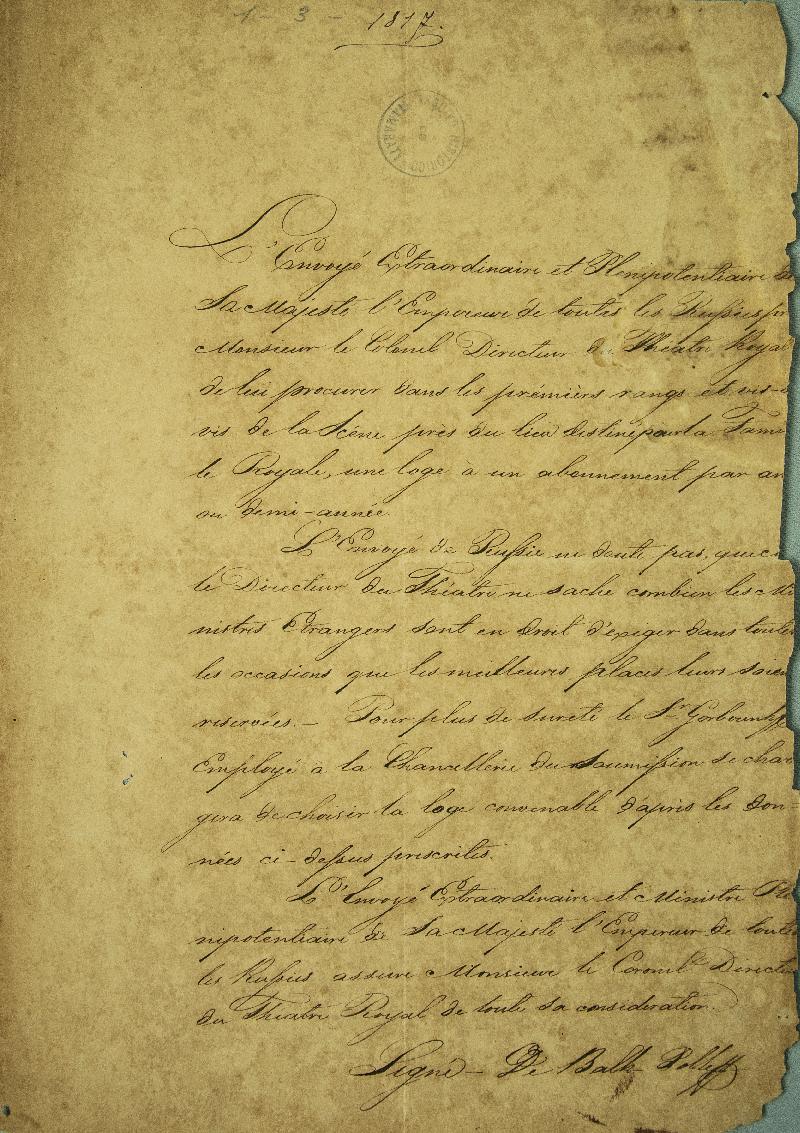 1 - 3 - 1817.
L'Envoyé Extraordinaire et Plenipotentiaire de
Sa Majesté l'Empereur de toutes les Russies pr
Monsieur le Colonel Directeur du Théatre Royal
de lui procurer dans les prémiers rangs et vis-à
vis de la Scéne près du lieu destiné pour la Fami
le Royale, une loge à un abonnement par an
ou demi-année.
L'Envoyé de Russie ne doute pas, que
le Directeur du Théatre ne sache combien les Mi
nistres Etrangers sont en droit d'exiger dans toutes
les occasions que les meilleures places leurs soien
reservées. — Pour plus de sureté le Sr Gorbounoff
Employé à la Chancellerie du Soumission se char
gera de choisir la loge convenable d'après les don-
nées ci-dessus prescrites.
L'Envoyé Extraordinaire et Ministre Ple
nipotentiaire de Sa Majesté l'Empereur de toutes
les Russies assure Monsieur le Coronel Directeu
du Théatre Royal de toute sa consideration.
Signé — De Balk Polleff